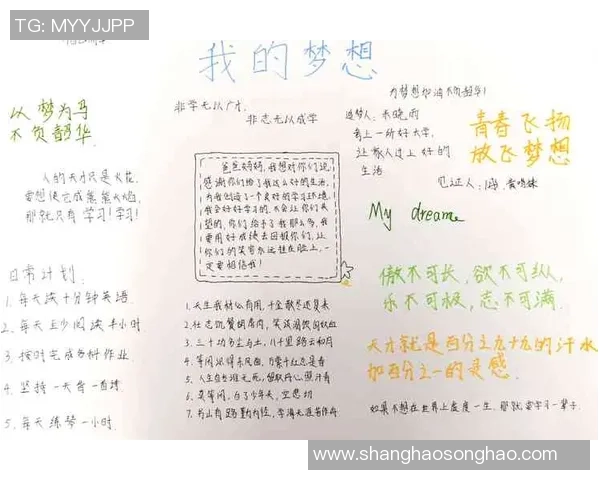 TG: MYYJJPP
我的梦想
以梦为马
不负韶华
人的天才只是火花,
要想使它成熊熊火焰,
那就只有 学习!学习!
日常计划.
1.每天读十分钟英语.
2.每天至少阅读半小时
3.按时完成各科作业
4.坚持一天背一首诗
5.每天练琴一小时.
非学无以广才,
非志无以成学
爸爸妈妈,我想对你们说,
感谢你们给了我这么好的生活,
为我创造了一个良好的学习环境,
我会好好学习的,不会让你们失
望的,你们给予了我那么多,我
要用好成绩去回报你们,让
你们的笑容永远挂在脸上,一
定要相信我!
1.天生我材必有用,千金散尽还复来
2.壮志饥餐胡虏肉,笑谈渴饮匈奴血
3.三十功名尘与土,八千里路云和月
4.等闲识得东风面,万紫千红总是春
5.人生自古谁无死,留取丹心照汗青
6.莫等闲,白了少年头,空悲切
7.书山有路勤为径,学海无涯苦作舟
为梦想加油不负韶华!
追梦人:
考上一所好大学,
让家人过上好的
生活
见证人:
青春飞扬
放飞梦想
My dream
傲不可长,欲不可纵,
乐不可极,志不可满.
天才就是百分之九十九的汗水
加百分之一的灵感.
如果不想在世界上虚度一生,那就要学习一辈子.
www.shanghaosonghao.com